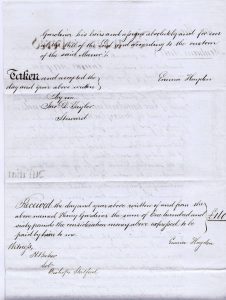 Gardiner his heirs and assigns absolutely and for ever
at the Will of the Lord and according to the custom
of the said Manor
Taken and accepted the
day and year above written
By me
Taylor
Steward
Emma Haydon
Received the day and year above written of and from the
above named Henry Gardiner the sum of One hundred and
sixty pounds the consideration money above expressed to be
paid by him to me.
£160
Witness,
Emma Haydon